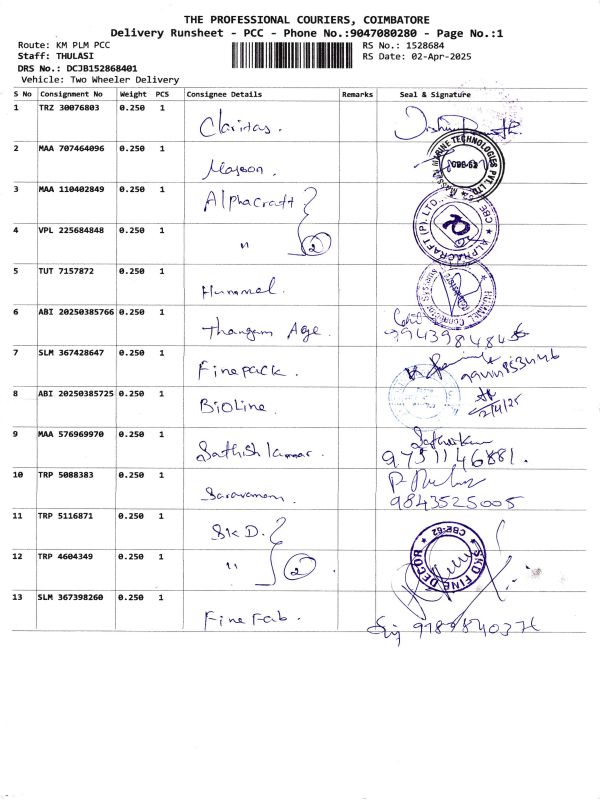 THE PROFESSIONAL COURIERS, COIMBATORE
Delivery Runsheet - PCC - Phone No.:9047080280 - Page No.:1
Route: KM PLM PCC RS No.: 1528684
Staff: THULASI RS Date: 02-Apr-2025
DRS No.: DCJB152868401
Vehicle: Two Wheeler Delivery
S No Consignment No Weight PCS Consignee Details Remarks Seal & Signature
1 TRZ 30076803 0.250 1 Claritas.
2 MAA 707464096 0.250 1 Masson. MARINE TECHNOLOGIES PVT. LTD.
3 MAA 110402849 0.250 1 Alphacraft
4 VPL 225684848 0.250 1 " 2 ALPHACRAFT (P). LTD. CBE
5 TUT 7157872 0.250 1 Hummel. Systems
6 ABI 20250385766 0.250 1 Thangam Age.
7 SLM 367428647 0.250 1 Finepack.
8 ABI 20250385725 0.250 1 BioLine. 2/4/25
9 MAA 576969970 0.250 1 Sathish kumar. 9751146881.
10 TRP 5088383 0.250 1 Saravanan. 9843525005
11 TRP 5116871 0.250 1 SKD.
12 TRP 4604349 0.250 1 " 2 SKD FINE DECOR CBE-62
13 SLM 367398260 0.250 1 Fine Fab.